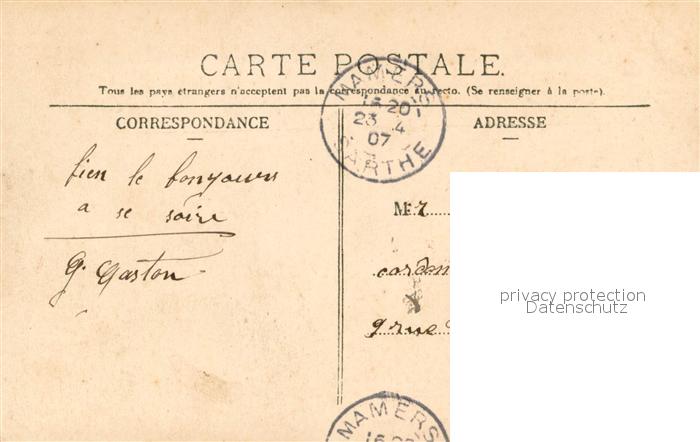 CARTE POSTALE.
Tous les pays étrangers n'acceptent pas la correspondance au recto. (Se renseigner à la poste).
MAMERS
15 20
23 4
07
SARTHE
CORRESPONDANCE
ADRESSE
bien le bonjours
a se soire
G. Gaston
M
cordon
9 rue
privacy protection
Datenschutz
MAMERS